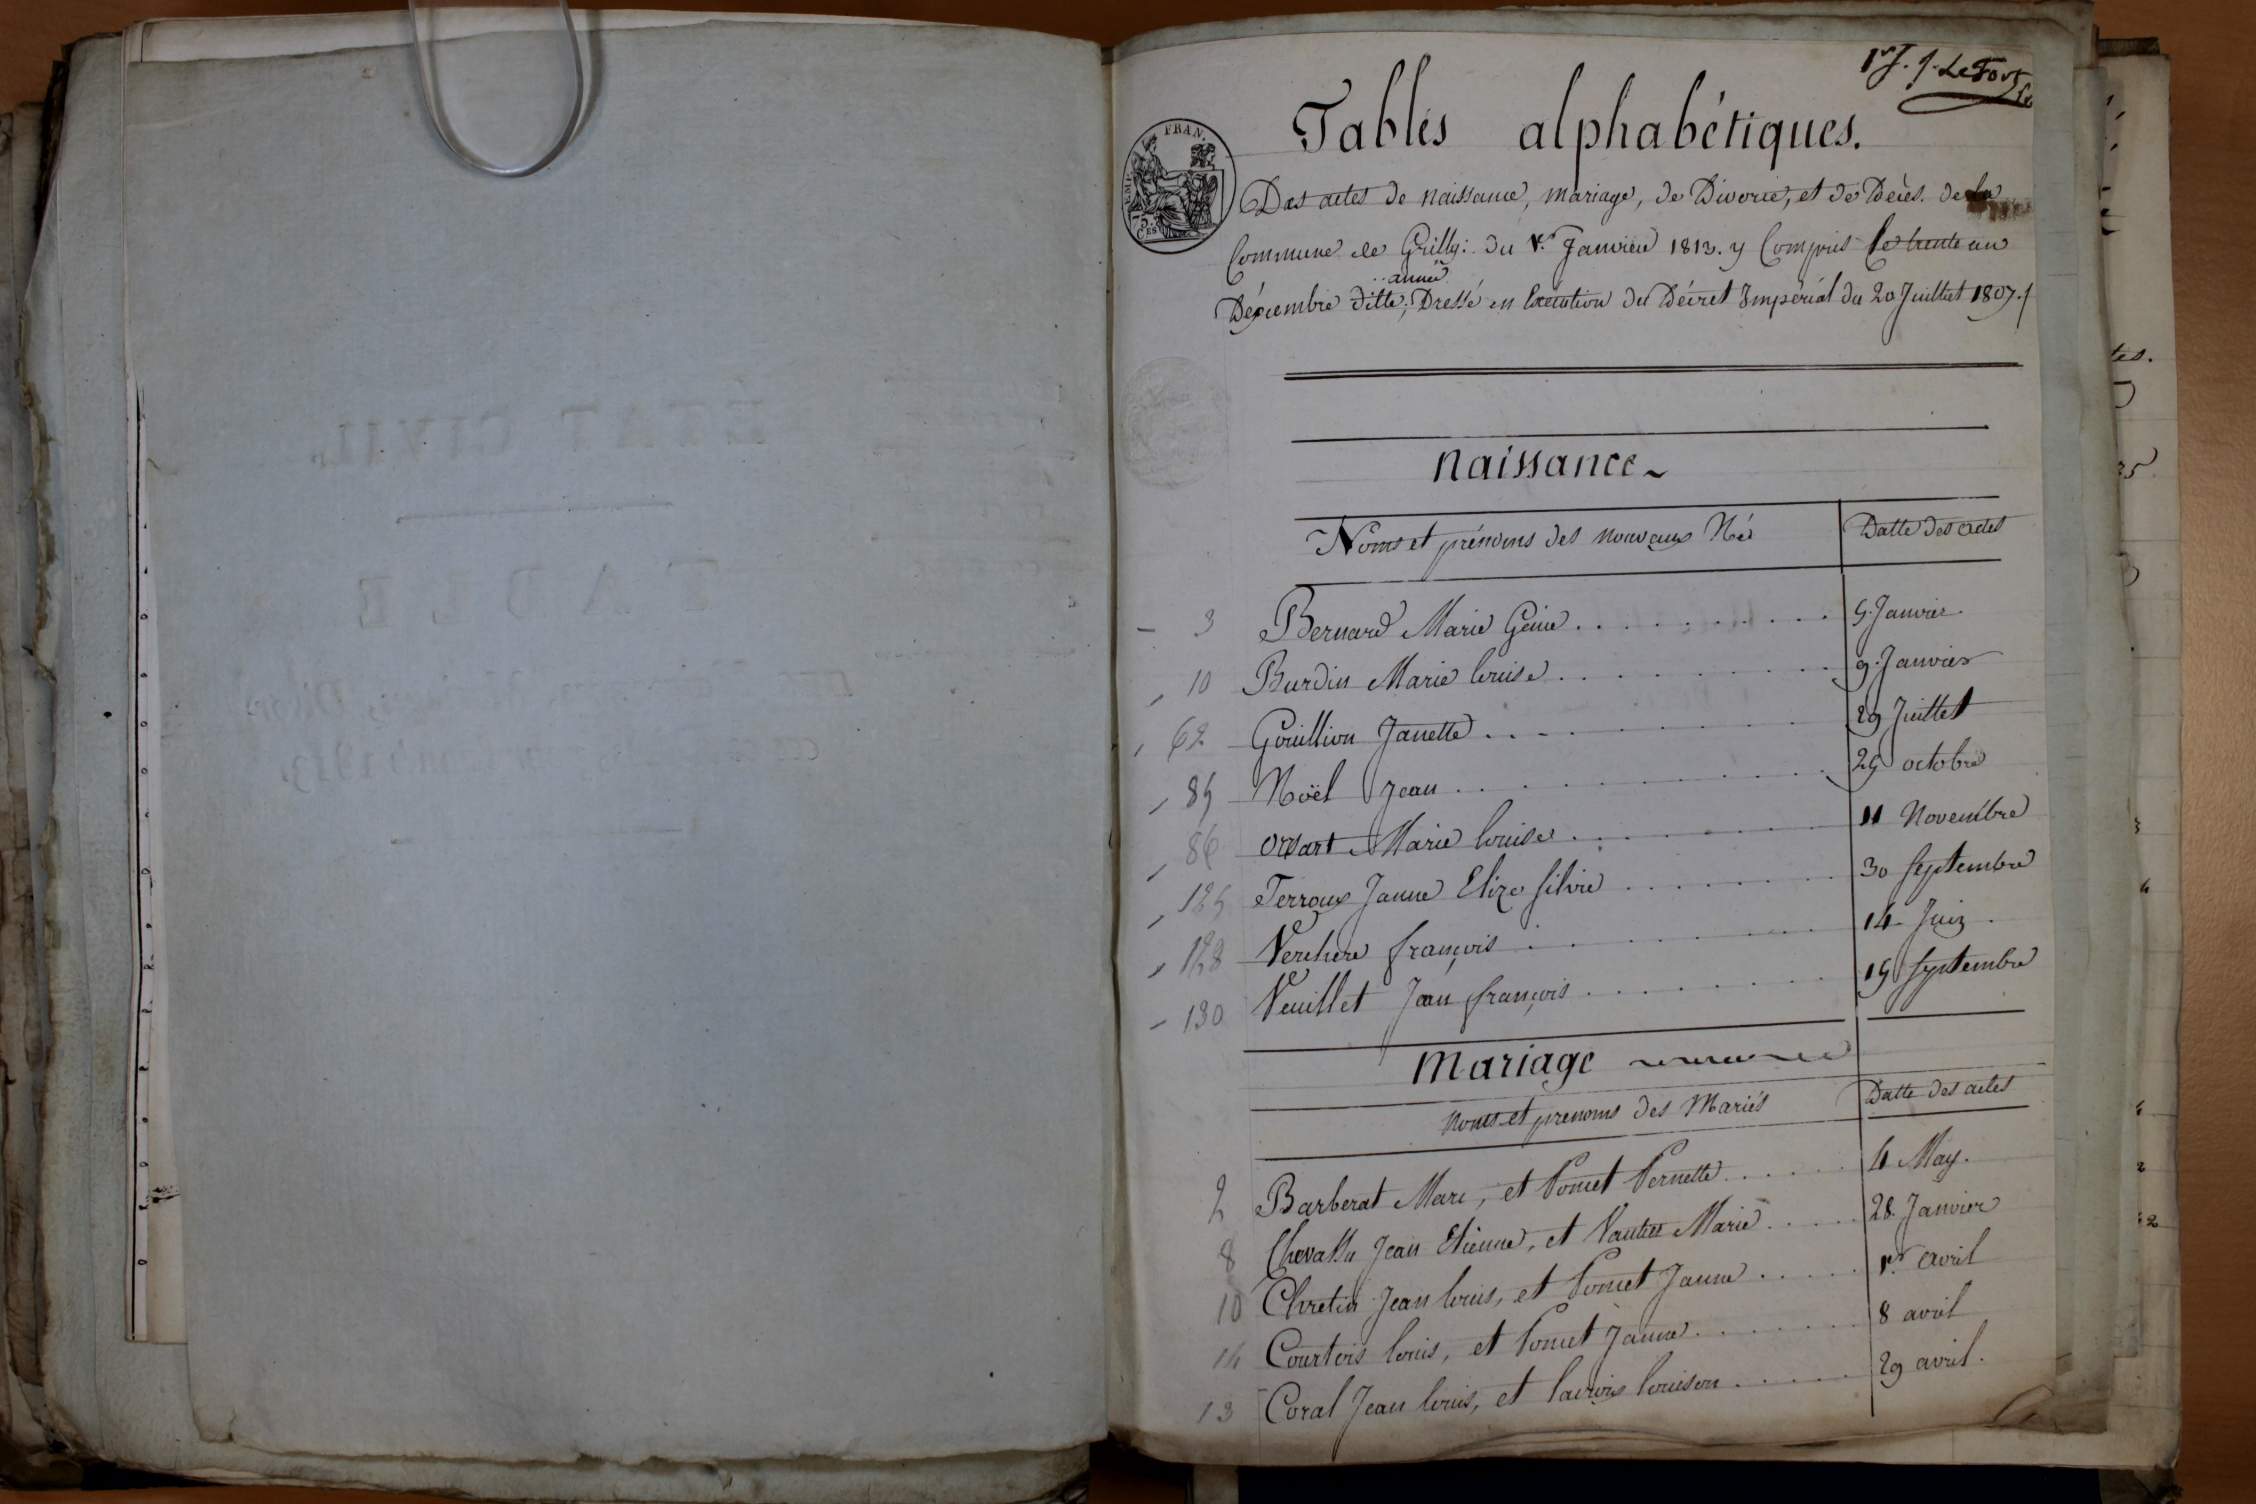 1er f. J. LeFort
Tables alphabétiques.
EMP. FRAN.
75 CES
Des actes de naissance, mariage, de Divorce, et de Décès. de la
Commune de Grilly: du 1er Janvier 1813. y Compris le trente un
année
Décembre ditte; Dressé en Exécution du Décret Impérial du 20 Juilliet 1807.
ETAT CIVIL
TABLE
naissance
Noms et prénoms des nouveaux Né
Datte des actes
3 Bernard Marie Génie 5. Janvier
10 Burdin Marie louise 9. Janvier
62 Gouillion Janette 29 Juillet
85 Noël Jean 25 octobre
86 orsat Marie louise 11 Novembre
125 Terroux Janne Elize Silvie 30 Septembre
128 Verchere françois 14 Juin
130 Veuillet Jean françois 15 Septembre
Mariage
Noms et prenoms des Mariés
Datte des actes
2 Barberat Marc, et Poncet Pernette 4 May.
8 Chevassu Jean Etienne, et Vautier Marie 28. Janvier
10 Chretin Jean louis, et Poncet Janne 1er avril
14 Courtois louis, et Poncet Janne 8 avril
13 Coral Jean louis, et louison 29 avril.